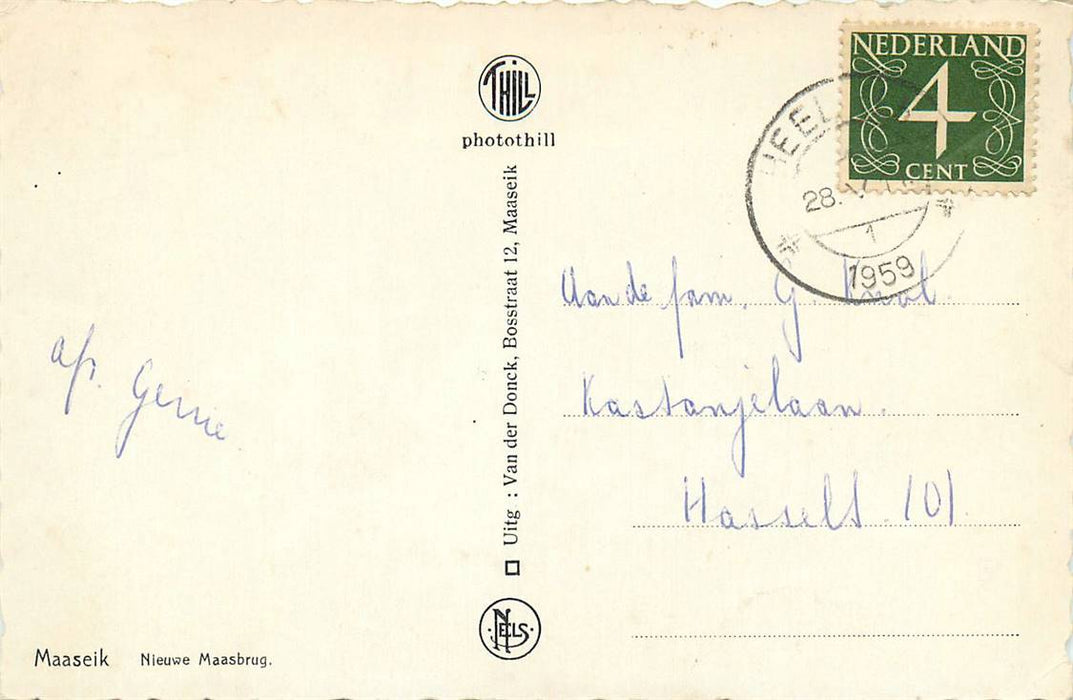 THILL
photothill
NEDERLAND
4
CENT
HEEL
28.
1
1959
Uitg : Van der Donck, Bosstraat 12, Maaseik
Aan de fam. G.
Kastanjelaan.
Hasselt (O)
afz. Gerrie
NELS
Maaseik Nieuwe Maasbrug.